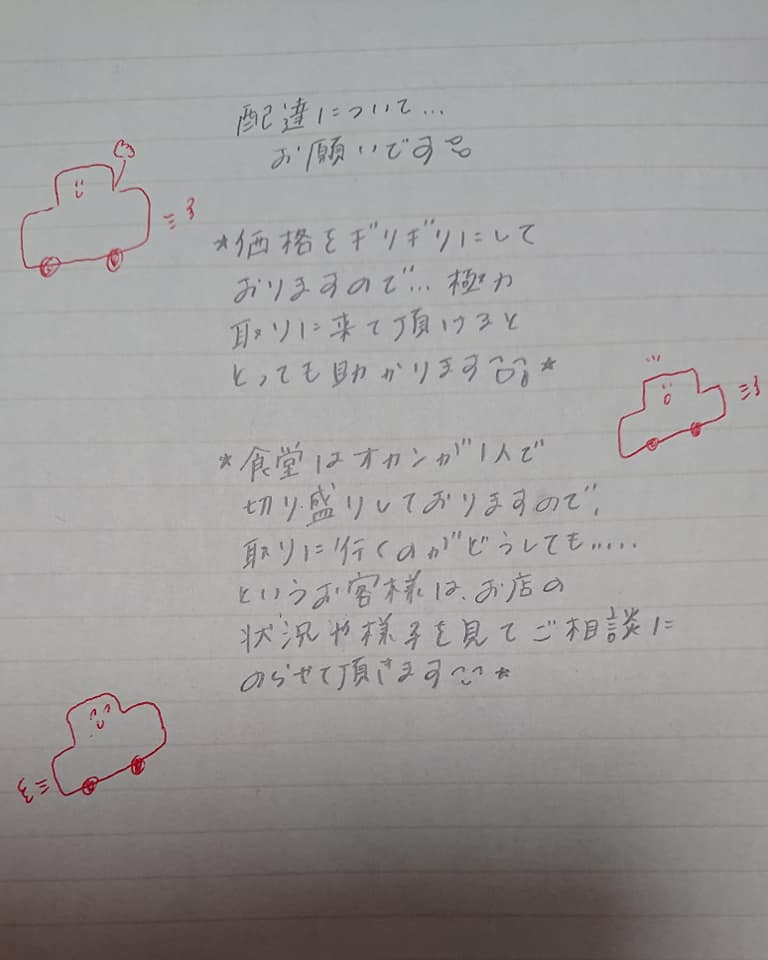 配達について...
お願いです
*価格をギリギリにして
おりますので...極力
取りに来て頂けると
とっても助かります*
*食堂はオカンが1人で
切り盛りしておりますので、
取りに行くのがどうしても.....
というお客様は、お店の
状況や様子を見てご相談に
のらせて頂きます*